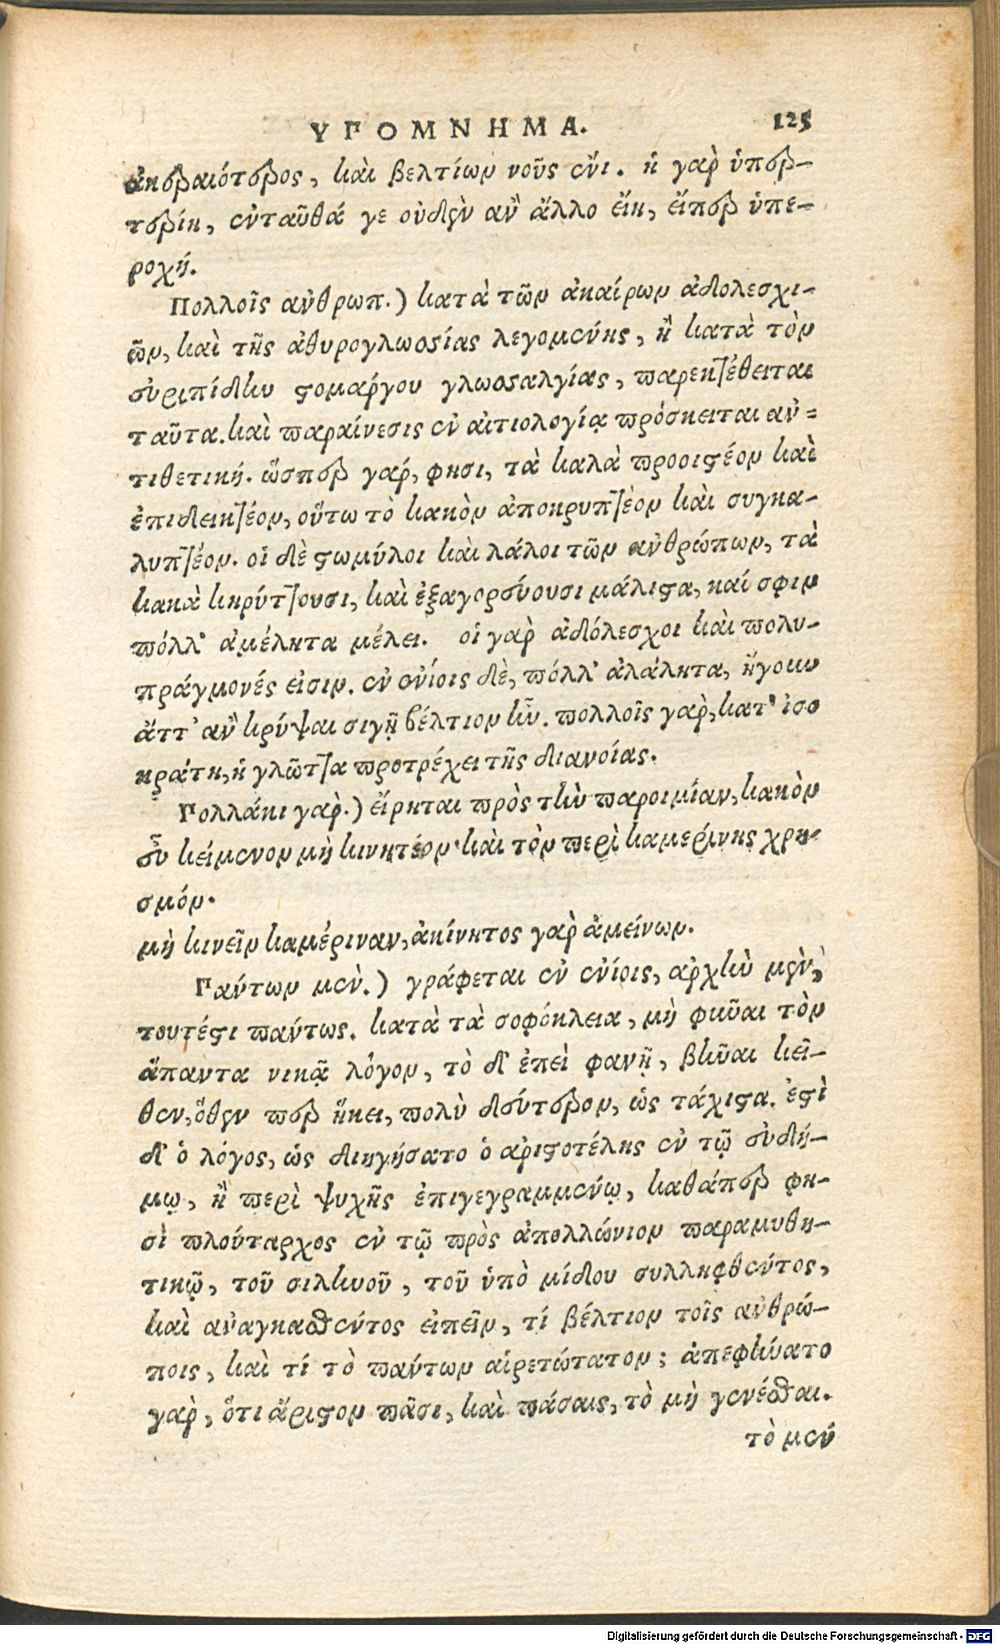 ΥΠΟΜΝΗΜΑ. 125
ἀκεραιότερος, καὶ βελτίων νοῦς ἔνι. ἡ γὰρ ὑπερ-
τερίη, ἐνταῦθά γε οὐδὲν ἂν ἄλλο εἴη, εἴπερ ὑπε-
ροχή.
Πολλοῖς ἀνθρωπ.) κατὰ τῶν ἀκαίρων ἀδολεσχι-
ῶν, καὶ τῆς ἀθυρογλωσσίας λεγομένης, ἢ κατὰ τὸν
εὐριπίδην στομάργου γλωσσαλγίας, παρεκτέθειται
ταῦτα. καὶ παραίνεσις ἐν αἰτιολογίᾳ πρόσκειται ἀν-
τιθετική. ὥσπερ γάρ, φησι, τὰ καλὰ προοιστέον καὶ
ἐπιδεικτέον, οὕτω τὸ κακὸν ἀποκρυπτέον καὶ συγκα-
λυπτέον. οἱ δὲ στωμύλοι καὶ λάλοι τῶν ἀνθρώπων, τὰ
κακὰ κηρύττουσι, καὶ ἐξαγορεύουσι μάλιστα, καί σφιν
πόλλ' ἀμέλητα μέλει. οἱ γὰρ ἀδόλεσχοι καὶ πολυ-
πράγμονές εἰσιν. ἐν ἐνίοις δὲ, πόλλ' ἀλάλητα, ἤγουν
ἅττ' ἂν κρύψαι σιγῇ βέλτιον ἦν. πολλοῖς γὰρ, κατ' ἰσο
κράτη, ἡ γλῶττα προτρέχει τῆς διανοίας.
Πολλάκι γὰρ.) εἴρηται πρὸς τὴν παροιμίαν, κακὸν
εὖ κείμενον μὴ κινητέον· καὶ τὸν περὶ καμερίνης χρη-
σμόν.
μὴ κινεῖν καμέριναν, ἀκίνητος γὰρ ἀμείνων.
Πάντων μὲν.) γράφεται ἐν ἐνίοις, ἀρχὴν μὲν,
τουτέστι πάντως. κατὰ τὰ σοφόκλεια, μὴ φῦναι τὸν
ἅπαντα νικᾷ λόγον, τὸ δ' ἐπεὶ φανῇ, βῆναι κεῖ-
θεν, ὅθεν περ ἥκει, πολὺ δεύτερον, ὡς τάχιστα. ἐστὶ
δ' ὁ λόγος, ὡς διηγήσατο ὁ ἀριστοτέλης ἐν τῷ εὐδή-
μῳ, ἢ περὶ ψυχῆς ἐπιγεγραμμένῳ, καθάπερ φη-
σὶ πλούταρχος ἐν τῷ πρὸς ἀπολλώνιον παραμυθη-
τικῷ, τοῦ σιληνοῦ, τοῦ ὑπὸ μίδου συλληφθέντος,
καὶ ἀναγκασθέντος εἰπεῖν, τί βέλτιον τοῖς ἀνθρώ-
ποις, καὶ τί τὸ πάντων αἱρετώτατον; ἀπεφήνατο
γὰρ, ὅτι ἄριστον πᾶσι, καὶ πάσαις, τὸ μὴ γενέσθαι.
τὸ μέν
Digitalisierung gefördert durch die Deutsche Forschungsgemeinschaft - DFG